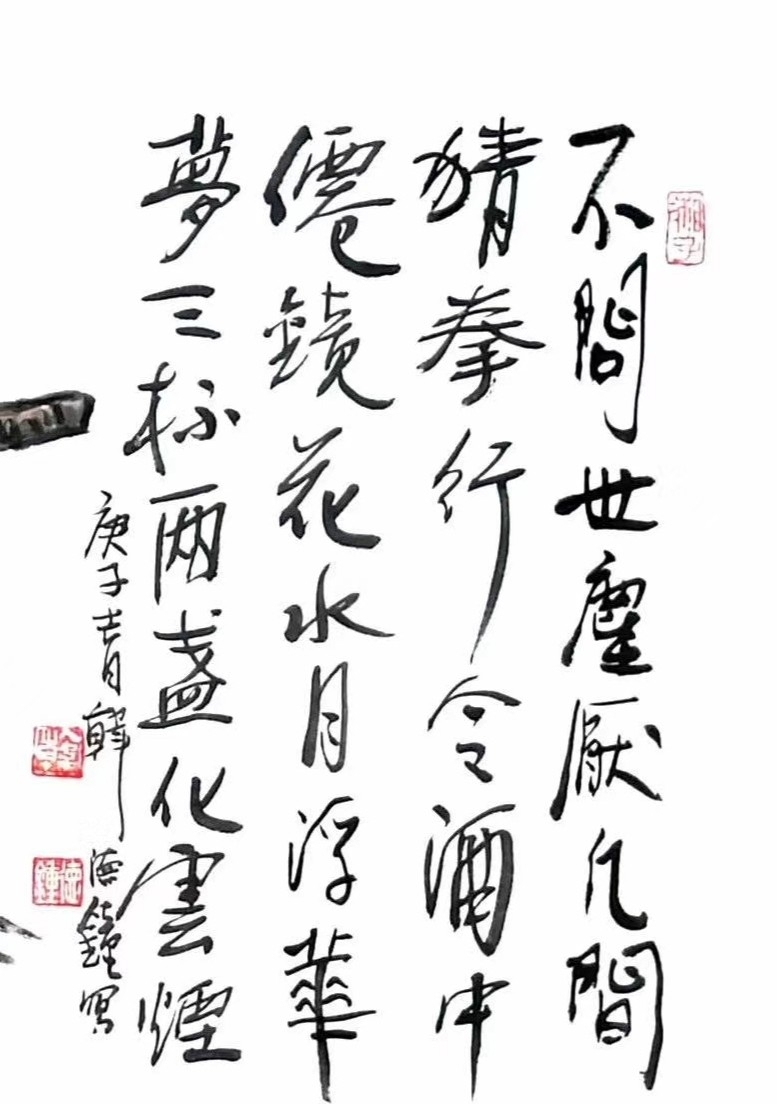 不問世塵厭凡間
猜拳行令酒中
僊鏡花水月浮華
夢三杯兩盞化雲煙
庚子韓德鐘寫
德鍾